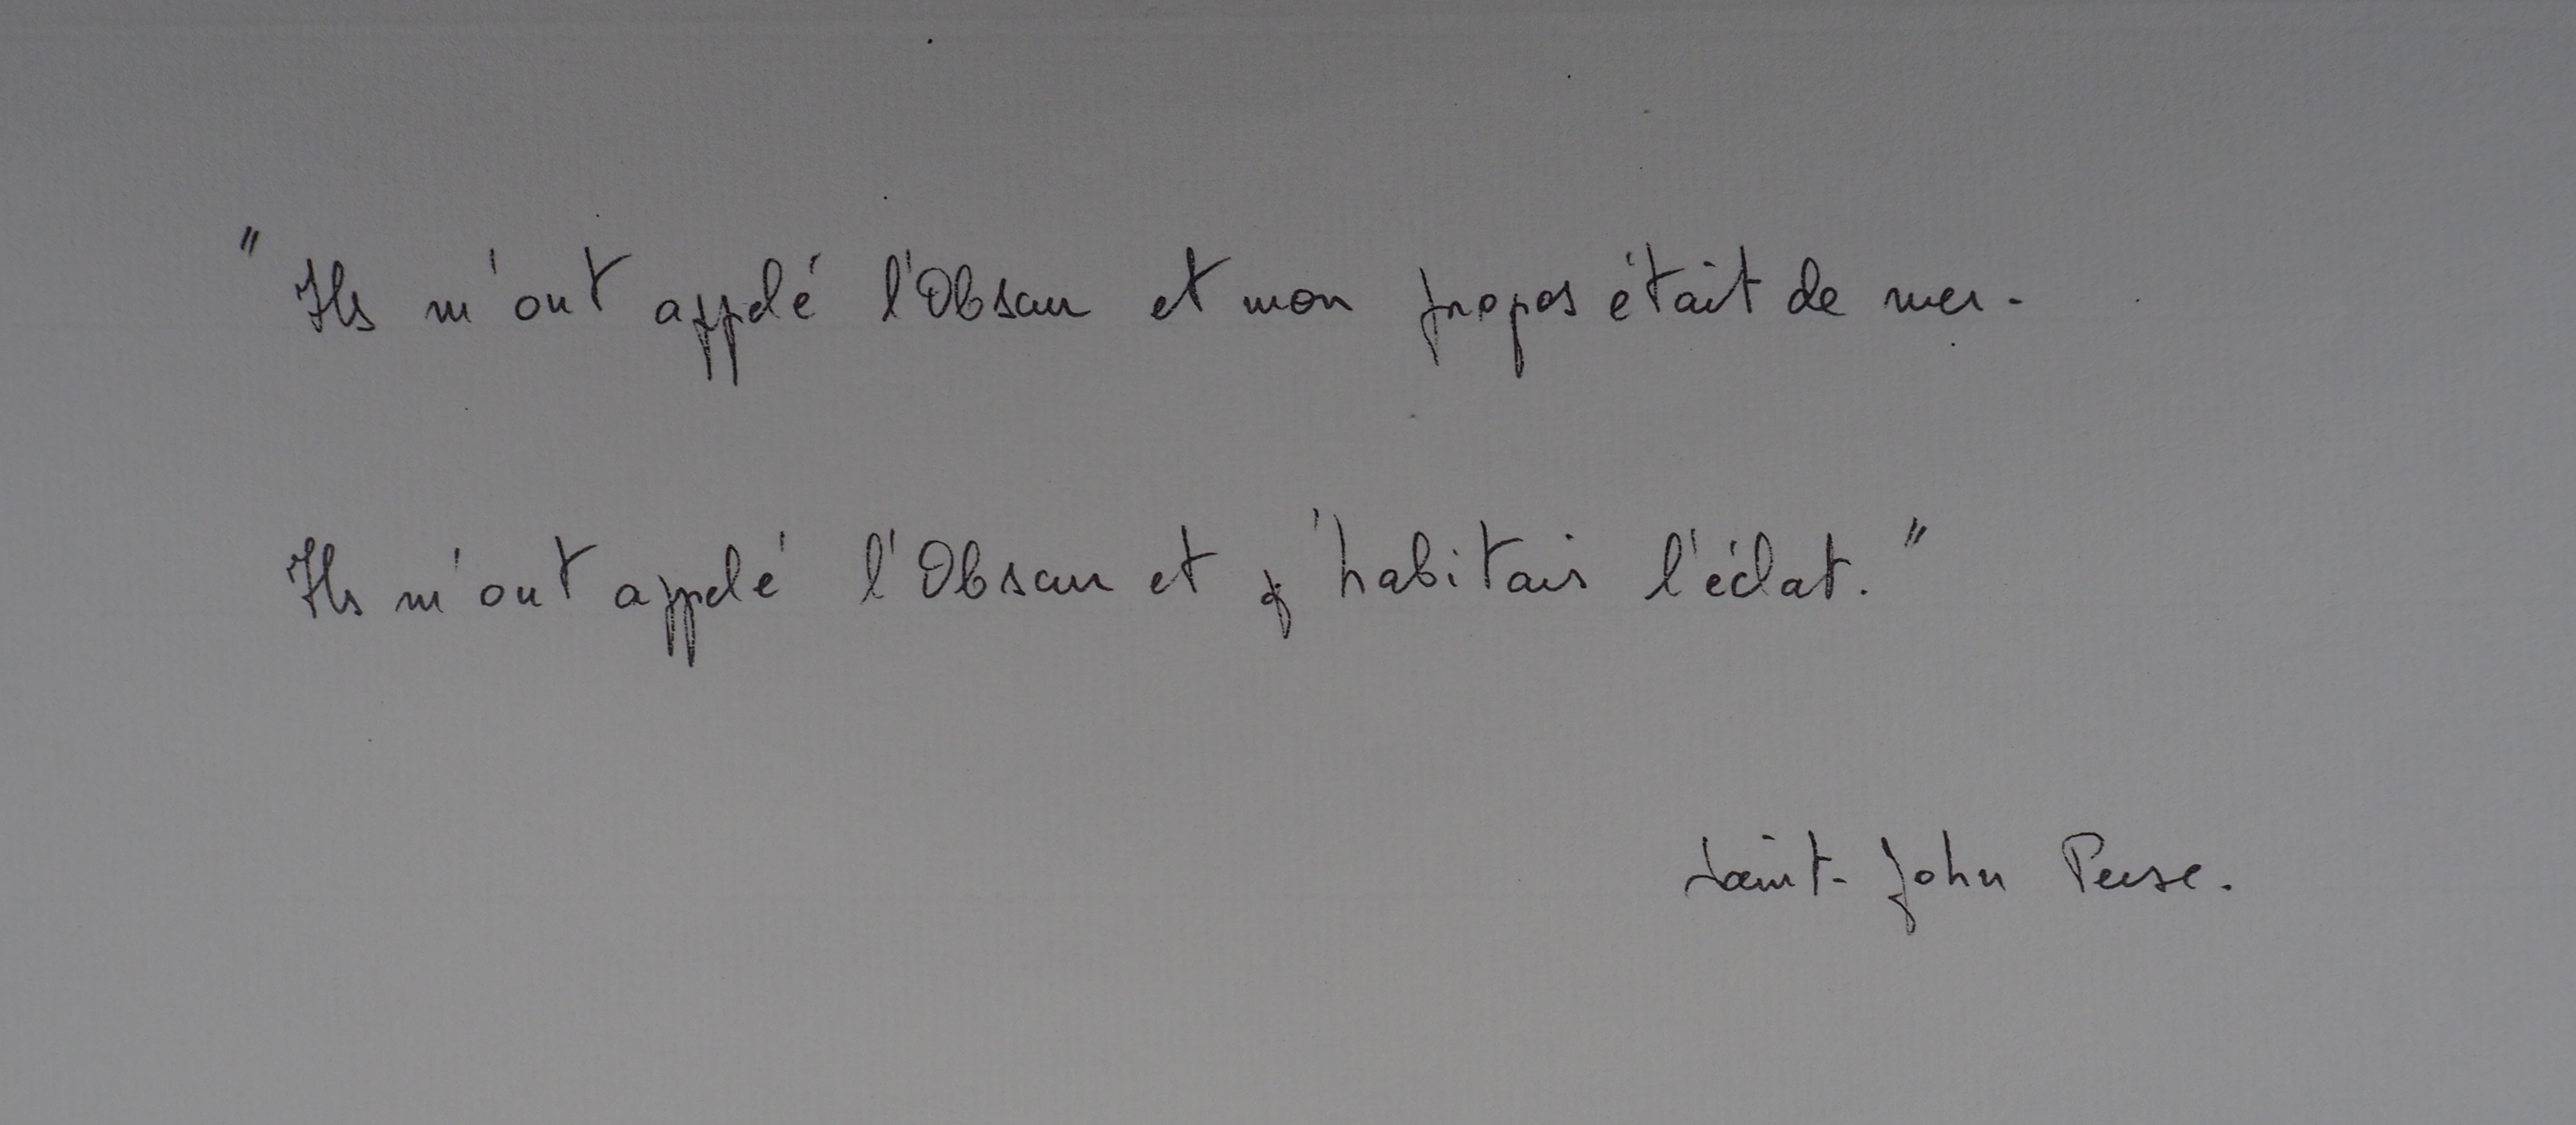 " Ils m'ont appelé l'Obscur et mon propos était de mer.
Ils m'ont appelé l'Obscur et j'habitais l'éclat. "
Saint-John Perse.